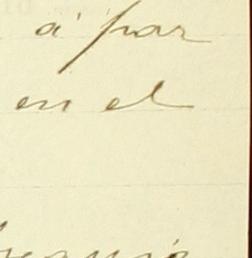 á par
en el